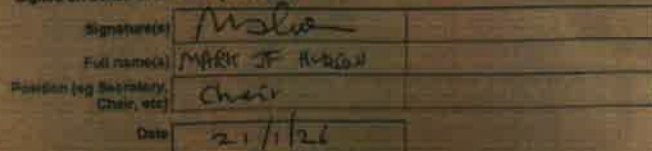 Signature(s)
Full name(s) MARK JF HUDSON
Position (eg Secretary,
Chair, etc) Chair
Date 21/1/26